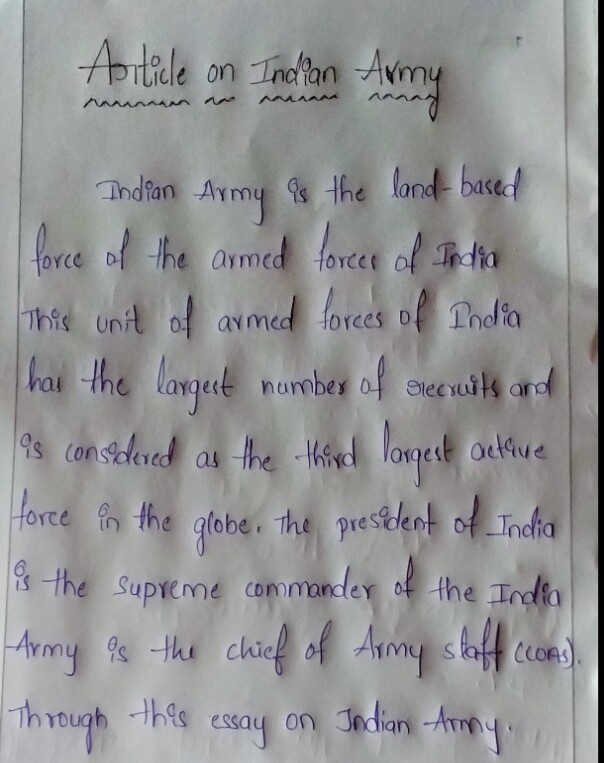 Article on Indian Army
Indian Army is the land-based
force of the armed forces of India
This unit of armed forces of India
has the largest number of recruits and
is considered as the third largest active
force in the globe. The president of India
is the supreme commander of the India
Army is the chief of Army staff (COAS).
Through this essay on Indian Army.